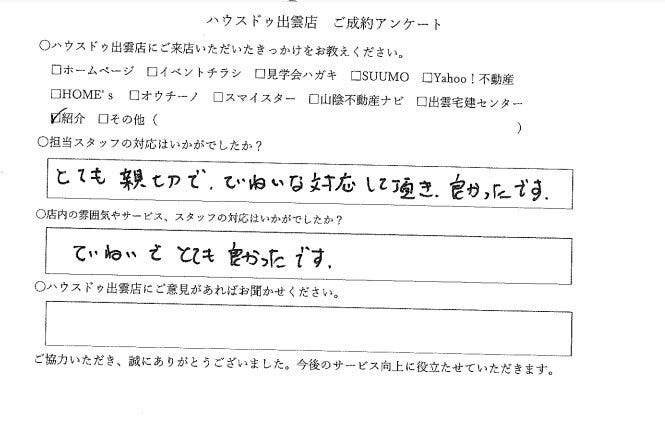 ハウスドゥ出雲店 ご成約アンケート
○ハウスドゥ出雲店にご来店いただいたきっかけをお教えください。
□ホームページ □イベントチラシ □見学会ハガキ □SUUMO □Yahoo!不動産
□HOME's □オウチーノ □スマイスター □山陰不動産ナビ □出雲宅建センター
☑紹介 □その他(
)
○担当スタッフの対応はいかがでしたか?
とても親切で、ていねいな対応して頂き、良かったです。
○店内の雰囲気やサービス、スタッフの対応はいかがでしたか?
ていねいでとても良かったです。
○ハウスドゥ出雲店にご意見があればお聞かせください。
ご協力いただき、誠にありがとうございました。今後のサービス向上に役立たせていただきます。